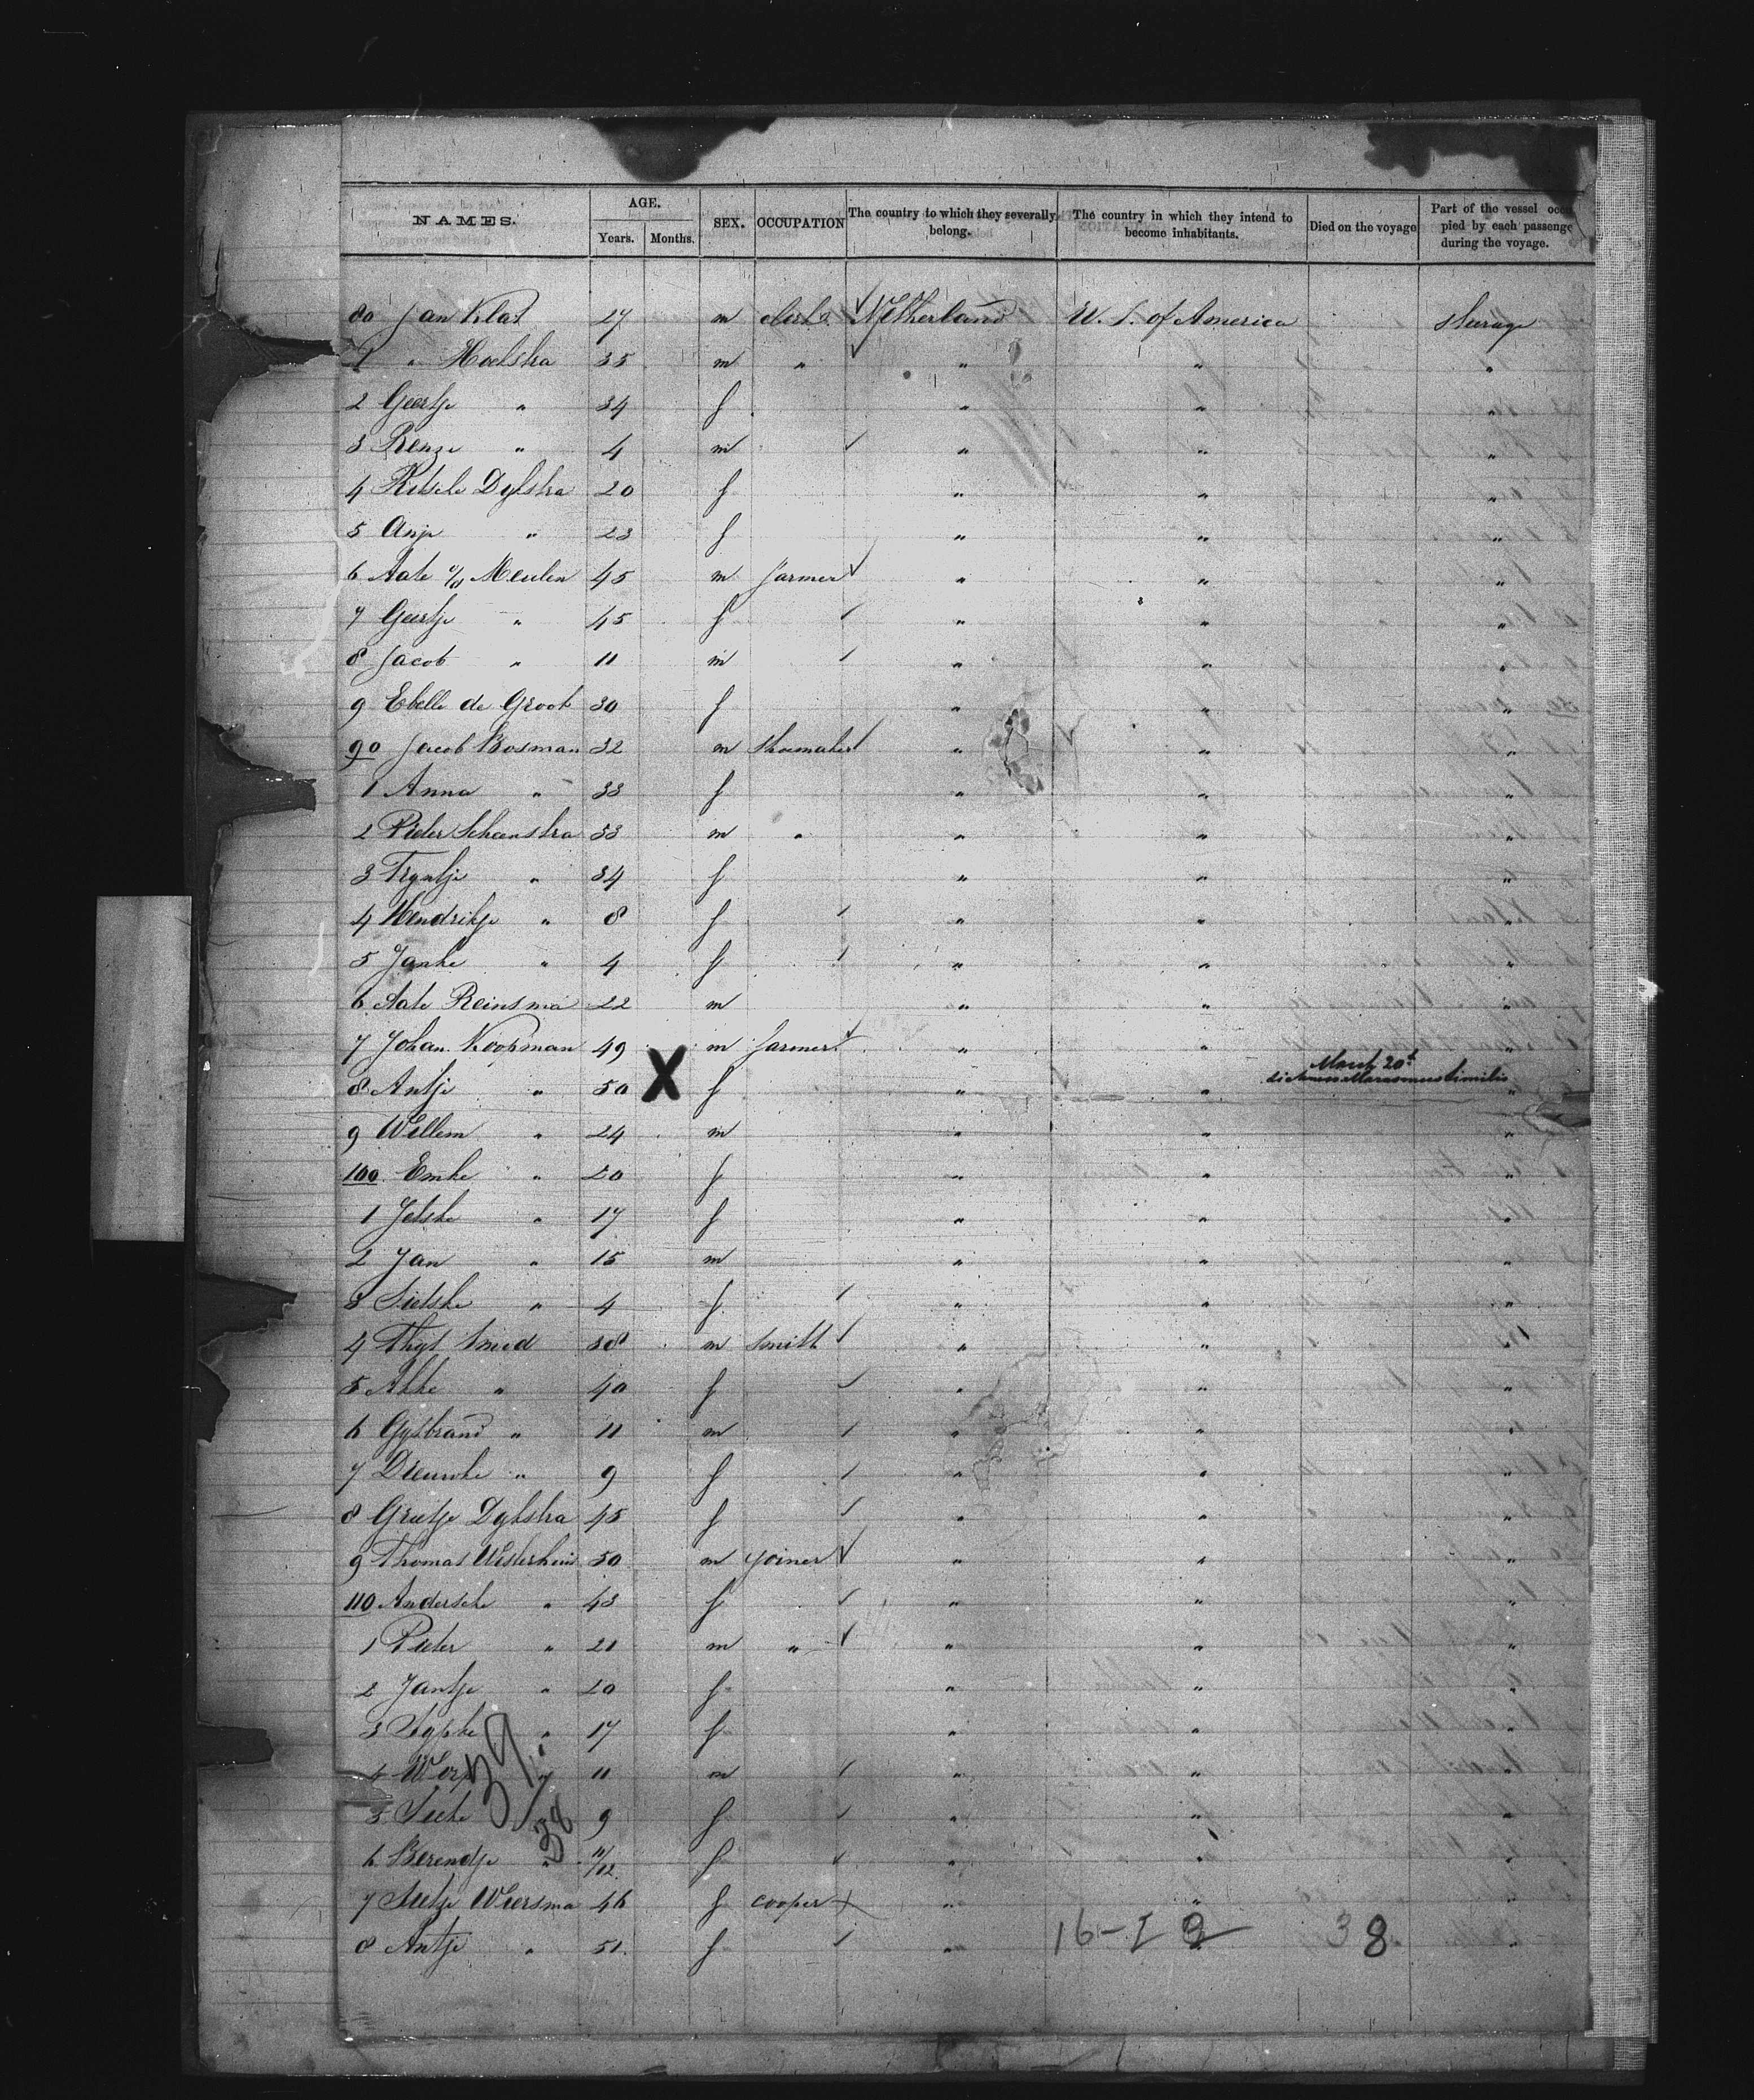 NAMES. AGE. Years. Months. SEX. OCCUPATION The country to which they severally belong. The country in which they intend to become inhabitants. Died on the voyage Part of the vessel occu pied by each passenge during the voyage.
80 Jan Klas 27 m clerk Netherland U. S. of America steerage
1 " Hoekstra 35 m " " " "
2 Geertje " 34 f " " "
3 Renze " 4 m " " "
4 Ritske Dykstra 20 f " " "
5 Anje " 23 f " " "
6 Aate v/d Meulen 45 m farmer " " "
7 Geertje " 45 f " " "
8 Jacob " 11 m " " "
9 Ebelle de Groot 30 f " " "
90 Jacob Bosman 32 m Shoemaker " " "
1 Anna " 33 f " " "
2 Pieter Schaanstra 33 m " " " "
3 Tryntje " 34 f " " "
4 Hendrikje " 8 f " " "
5 Janke " 4 f " " "
6 Aate Reinsma 22 m " " "
7 Johan Koopman 49 m farmer " " "
8 Antje " 50 X f " " March 20th sickness Marasmus "
9 Willem " 24 m " " "
100 Emke " 20 f " " "
1 Jelske " 17 f " " "
2 Jan " 15 m " " "
3 Sietske " 4 f " " "
4 Thys Smid 38 m Smith " " "
5 Akke " 40 f " " "
6 Gysbrand " 11 m " " "
7 Dieuwke " 9 f " " "
8 Grietje Dykstra 45 f " " "
9 Thomas Westerhuis 50 m joiner " " "
110 Anderske " 43 f " " "
1 Pieter " 21 m " " " "
2 Jantje " 20 f " " "
3 Sypke " 17 f " " "
4 " 11 m " " "
5 " 9 f " " "
6 Berendje " 11/12 f " " "
7 Wiersma 46 f cooper " " "
8 Antje " 51 f " "
39
38
16-I 2 38